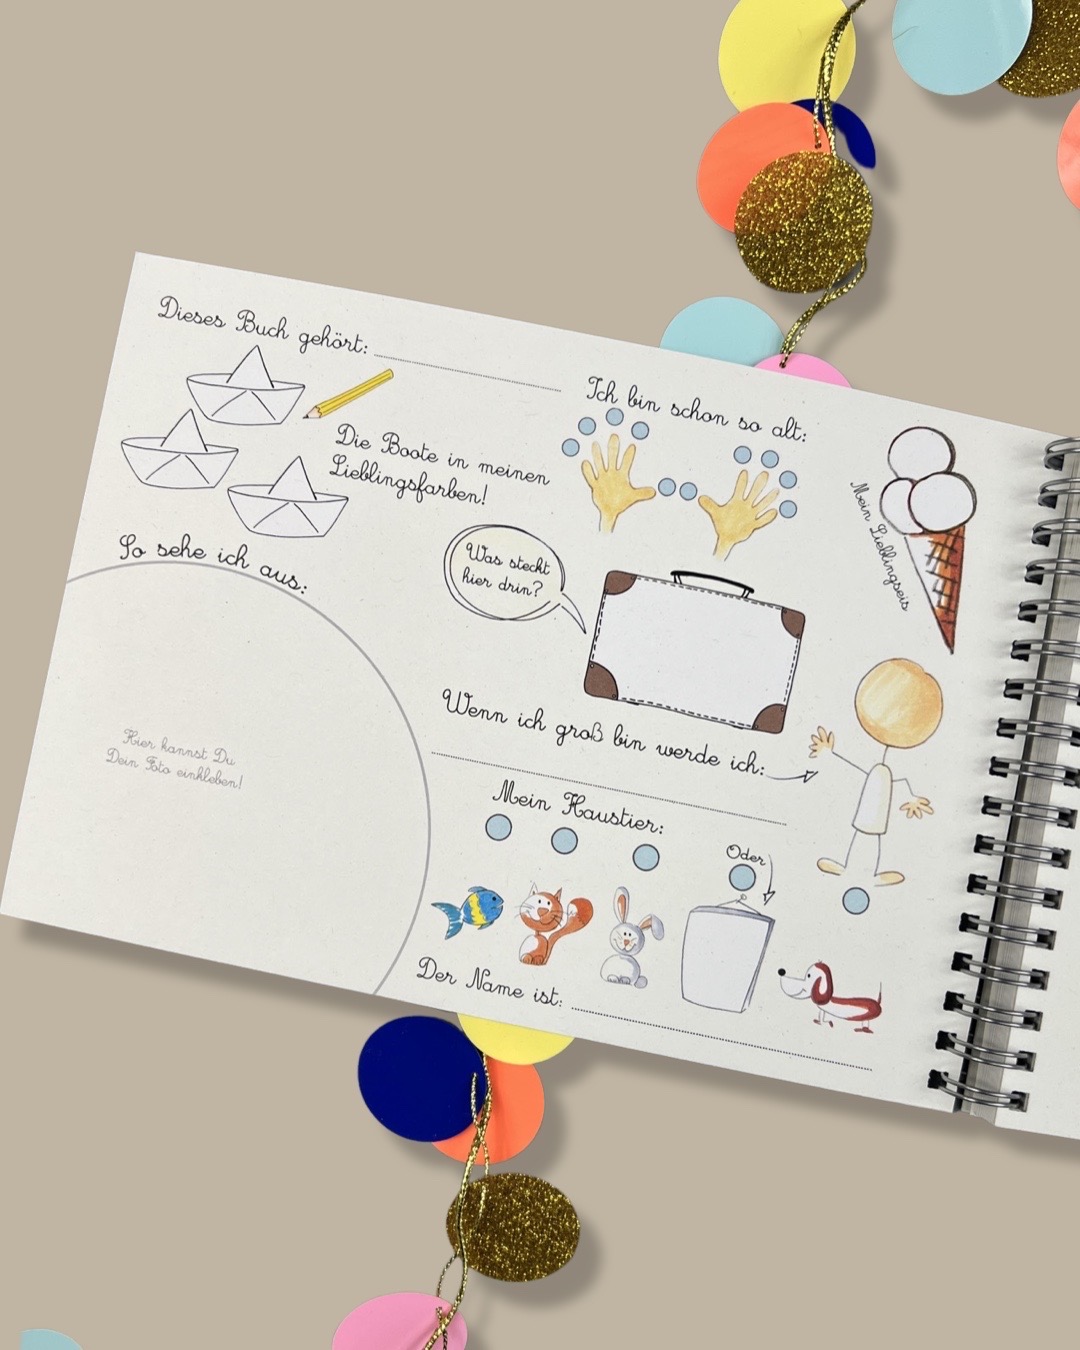 Dieses Buch gehört:
Die Boote in meinen
Lieblingsfarben!
Ich bin schon so alt:
Mein Lieblingseis
So sehe ich aus:
Was steckt
hier drin?
Hier kannst Du
Dein Foto einkleben!
Wenn ich groß bin werde ich:
Mein Haustier:
Oder
Der Name ist: